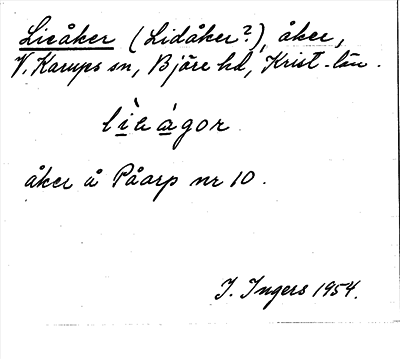 Lieåker (Lidåker?), åker,
V. Karups sn, Bjäre hd, Krist-län.
åker å Påarp nr 10.
I. Ingers 1954.